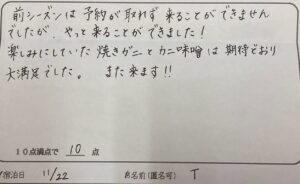 前シーズンは 予約が 取れず 来ることが できません
でしたが、やっと来ることができました!
楽しみにしていた 焼きガニと カニ味噌は 期待どおり
大満足でした。 また来ます!!
10点満点で 10 点
宿泊日 11/22 お名前(匿名可) T